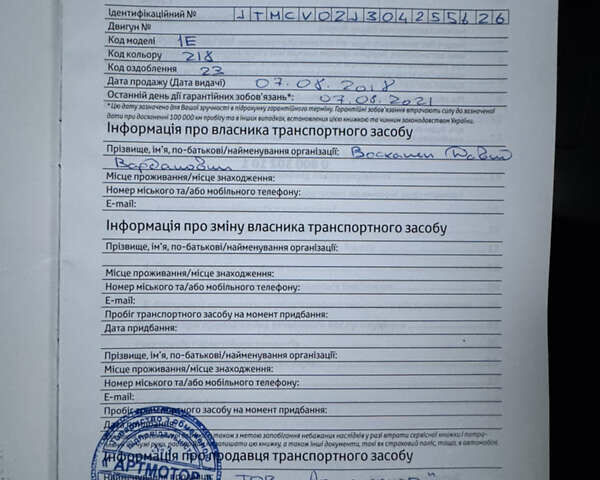 Ідентифікаційний № JTMCV02J304255626
Двигун №
Код моделі 1E
Код кольору 218
Код оздоблення 23
Дата продажу (Дата видачі) 07.08.2018
Останній день дії гарантійних зобов'язань*: 07.08.2021
*Цю дату зазначено для Вашої зручності в підрахунку гарантійного терміну. Гарантійні зобов'язання втрачають силу до зазначеної
дати при досягненні 100 000 км пробігу та в інших випадках, встановлених цією книжкою та чинним законодавством України.
Інформація про власника транспортного засобу
Прізвище, ім'я, по-батькові/найменування організації: Воскацян Давид
Варданович
Місце проживання/місце знаходження:
Номер міського та/або мобільного телефону:
E-mail:
Інформація про зміну власника транспортного засобу
Прізвище, ім'я, по-батькові/найменування організації:
Місце проживання/місце знаходження:
Номер міського та/або мобільного телефону:
E-mail:
Пробіг транспортного засобу на момент придбання:
Дата придбання:
Прізвище, ім'я, по-батькові/найменування організації:
Місце проживання/місце знаходження:
Номер міського та/або мобільного телефону:
E-mail:
Пробіг транспортного засобу на момент придбання:
Дата придбання:
також з метою запобігання небажаних наслідків у разі втрати сервісної книжки і потра-
руки, лишати цю книжку, а також інші документи, такі як страховий поліс, тощо, в автомобілі.
АРТМОТОР
Інформація про продавця транспортного засобу
Найменування ТОВ